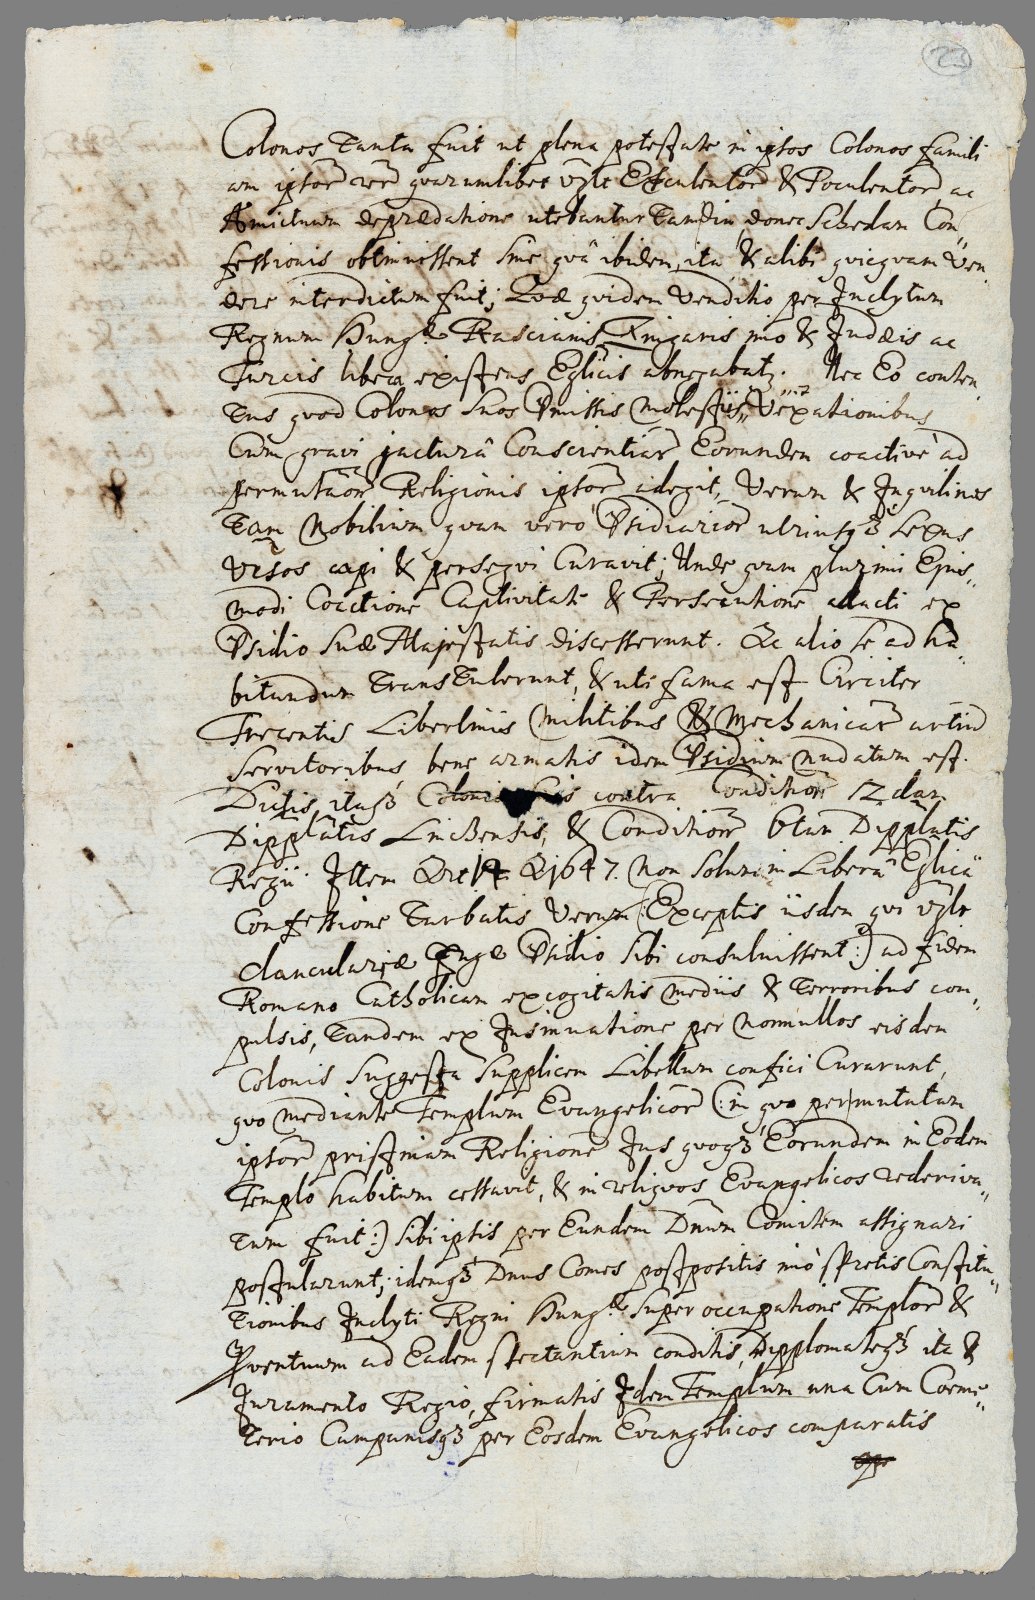 23
Colonos Tanta fuit ut plena potestate in ipsos Colonos famili
am ipsor̃ rer̃ quarumlibet Esculentor̃ & Poculentor̃ ac
Amictuum deprædatione utebantur Tamdiu donec Schedam Con„
fessionis obtinuissent sine quâ ibidem, ita & alibi quicquam Ven
dere interdictum fuit; Quæ quidem Venditio per Inclytum
Regnum Hung: Rascianis, Zingaris imo & Judæis ac
Turcis libera existens Eglicis abnegabatr. Nec Eo conten
Tus quod Colonos Suos Pmissis Molestiis„ Vexationibus
Cum gravi jacturâ Conscientiar̃ Eorundem coactive ad
permutaõr Religionis ipsor̃ adegit, Verum & Inquilinos
Tam Nobilium quam vero Psidiarior̃ utriusqꝫ Sexus
Visos capi & persequi Curavit; Unde quam plurimi Ejus„
modi Coactione Captivitate & Persecutione adacti ex
Psidio Suæ Majestatis discesserunt. Ac alio se ad ha„
bitandum TransTulerunt, & uti fama est Circiter
Trecentis Libertinis Militibus & Mechanicar̃ artiũ
Servitoribus bene armatis idem Psidium Nudatum est.
Dictis itaqꝫ contra Condition̄ 12 dam
Dipplatis LincBensis, & Condition̄ 6tam Dipplatis
Regii Item Art 14 A 1647. Non solum in Liberâ Eglicâ
Confessione Turbatis Verum (:Exceptis iisdem qui
clancularæ fugæ Psidio sibi consuluissent:) ad fidem
Romano Catholicam excogitatis Mediis & Terroribus com„
pulsis, Tandem ex Insinuatione per Nonnullos eisdem
Colonis Suggesta Supplicem Libellum confici Curarunt,
quo mediante Templum Evangelicor̃ (:in quo permutatam
ipsor̃ pristinam Religione Jus quoqꝫ Eorundem in Eodem
Templo habitum cessavit, & in reliquos Evangelicos rederiva„
Tum fuit:) sibi ipsis per Eundem Dnum Comitem assignari
postularunt; idemqꝫ Dnus Comes postpositis imò spretis Constitu„
Tionibus Inclyti Regni Hung: super occupatione Templor̃ &
Pventuum ad Eadem spectantium conditis, Dipplomateqꝫ ita &
Juramento Regio, firmatis Idem Templum una Cum Coeme„
Terio Campanisqꝫ per Eosdem Evangelicos comparatis